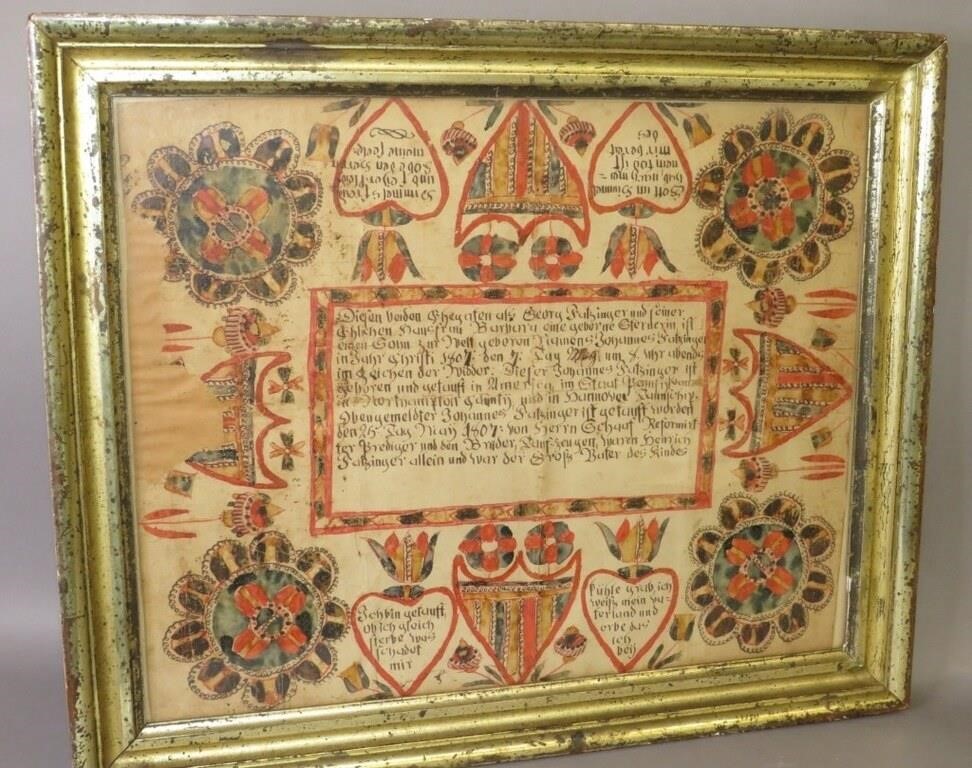 Diesen beiden Ehegatten als Georg Fatzinger und seiner
Ehlichen Hausfrau Barbara eine geborne Sterderin ist
einen Sohn zur Welt geboren Namens Johannes Fatzinger
in Jahr Christi 1807 den 7. Tag um 8. uhr abends
im Zeichen der Widder. Dieser Johannes Fatzinger ist
gebohren und getauft in America im Staat Pennsylvani
in Northampton Caunty und in Hannover Taunschip
Obengemeldter Johannes Fatzinger ist getauft worden
den 25 Tag May 1807: von Herrn Schaaf Reformirt
ter Prediger und den Tauf-zeugen waren Heirich
Fatzinger allein und war der Groß Vater des Kindes
Ich bin getauft,
ob ich gleich
sterbe was
schadet
mir
kühle grab, ich
weiß mein va-
terland und
erbe das
ich
bey
Gott im Himmel
hab, nach mei-
nem tod ist
mir bereit
des
Himmels freud
und
meine